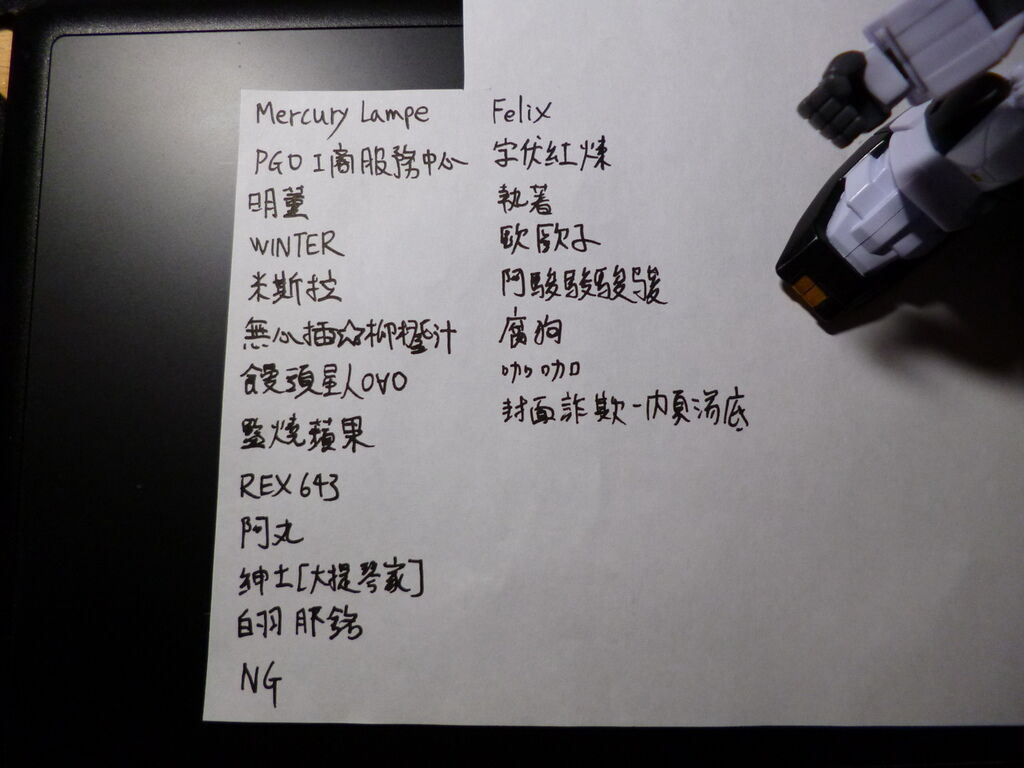 Mercury Lampe
PGO工商服務中心
明蓳
WINTER
米斯拉
無心插☆柳橙汁
饅頭星人OVO
鹽燒蘋果
REX643
阿丸
紳士[大提琴家]
白羽
NG
Felix
宇伏紅煉
執著
歐歐子
阿駿駿駿駿
腐狗
咖咖
封面詐欺-內頁湯底